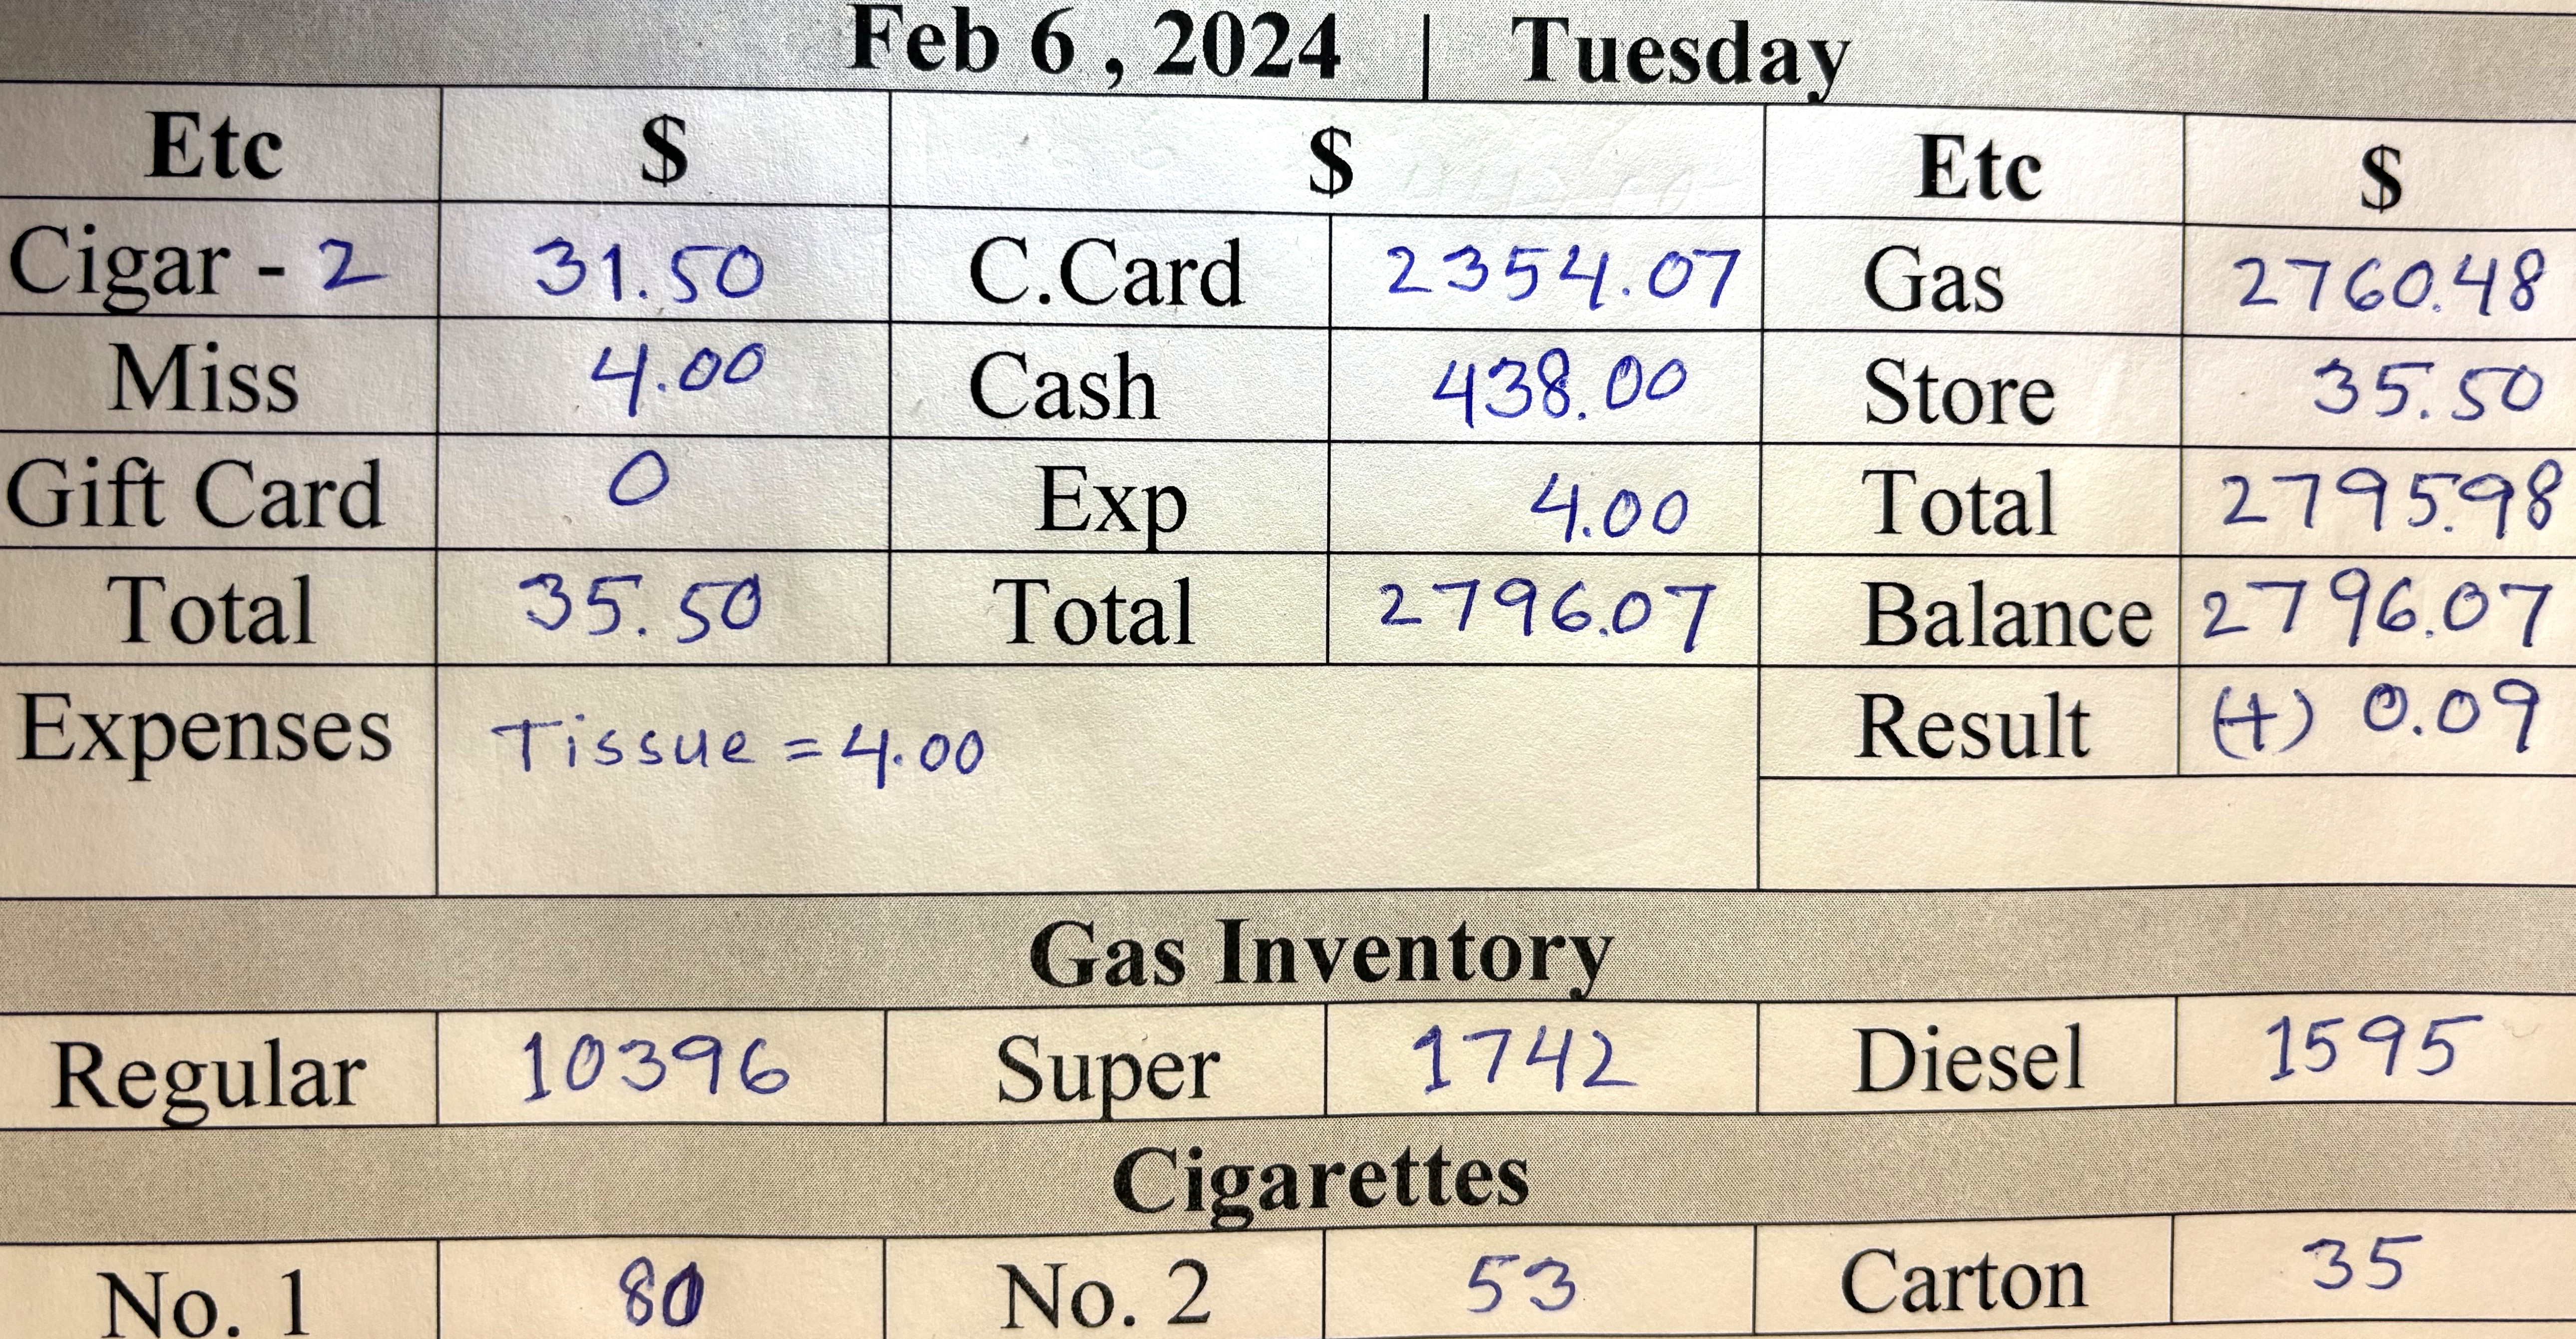 Feb 6 , 2024 | Tuesday
Etc $ $ Etc $
Cigar - 2 31.50 C.Card 2354.07 Gas 2760.48
Miss 4.00 Cash 438.00 Store 35.50
Gift Card 0 Exp 4.00 Total 2795.98
Total 35.50 Total 2796.07 Balance 2796.07
Expenses Tissue = 4.00 Result (+) 0.09
Gas Inventory
Regular 10396 Super 1742 Diesel 1595
Cigarettes
No. 1 No. 2 53 Carton 35